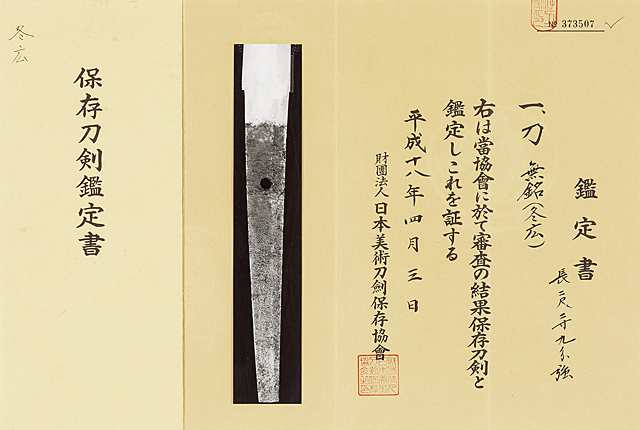 № 373507
鑑定書
一、刀 無銘(冬広)
長二尺二寸九分強
右は當協會に於て審査の結果保存刀剣と
鑑定しこれを証する
平成十八年四月三日
財團法人日本美術刀劍保存協會
冬広
保存刀剣鑑定書